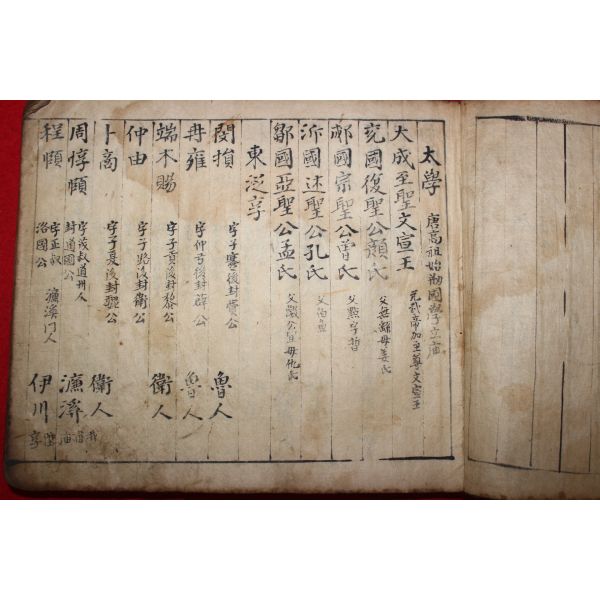 太學 唐高祖始詔國學立庙
大成至聖文宣王 元武帝加至尊文宣王
兗國復聖公顔氏 父無繇母姜氏
郕國宗聖公曾氏 父點字晳
沂國述聖公孔氏 父伯魚
鄒國亞聖公孟氏 父激公宜母仉氏
東從享
閔損 字子騫後封費公 魯人
冉雍 字仲弓後封薛公 魯人
端木賜 字子貢後封黎公 衛人
仲由 字子路後封衛公
卜商 字子夏後封魏公 衛人
周惇頤 字茂叔道州人 封道國公 濂溪
程頤 字正叔 濂溪门人 洛國公 伊川